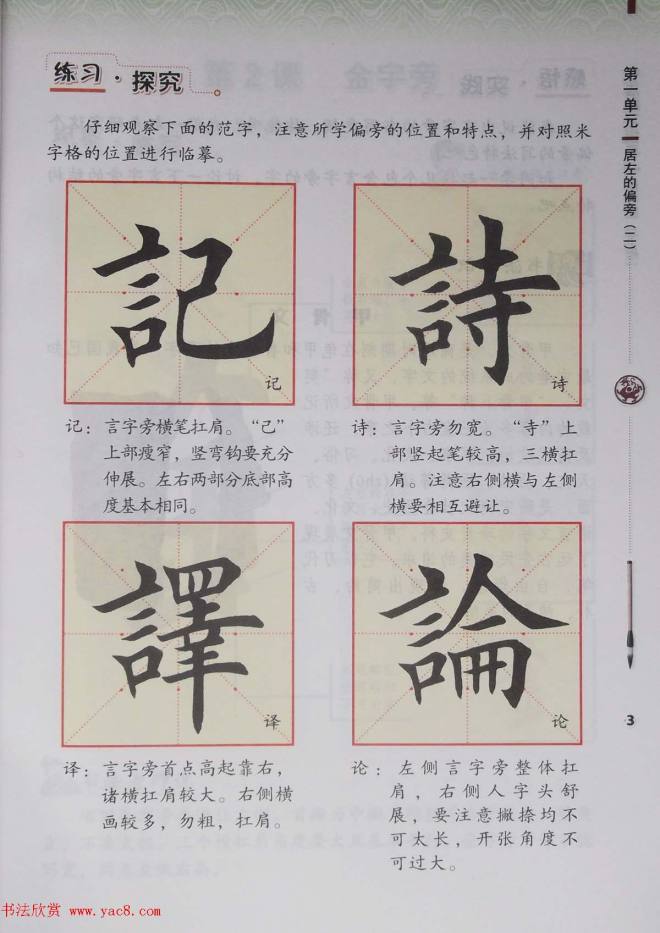 练习·探究
仔细观察下面的范字，注意所学偏旁的位置和特点，并对照米
字格的位置进行临摹。
記
记
詩
诗
记：言字旁横笔扛肩。“己”
上部瘦窄，竖弯钩要充分
伸展。左右两部分底部高
度基本相同。
诗：言字旁勿宽。“寺”上
部竖起笔较高，三横扛
肩。注意右侧横与左侧
横要相互避让。
譯
译
論
论
译：言字旁首点高起靠右，
诸横扛肩较大。右侧横
画较多，勿粗，扛肩。
论：左侧言字旁整体扛
肩，右侧人字头舒
展，要注意撇捺均不
可太长，开张角度不
可过大。
第一单元 居左的偏旁（二）
3
书法欣赏 www.yac8.com